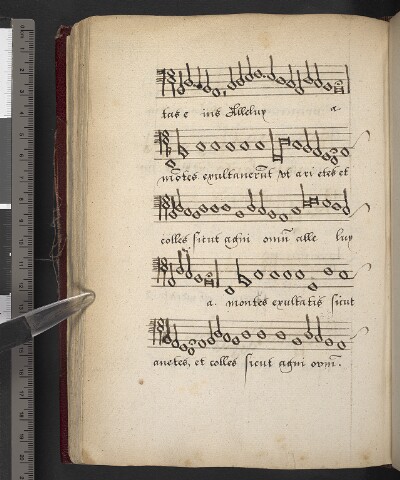 tas e ius Alleluy a
mōtes exultauerūt vt ari etes et
colles sicut agni ouiū alle luy
a. montes exultatis sicut
arietes, et colles sicut agni ouiū.